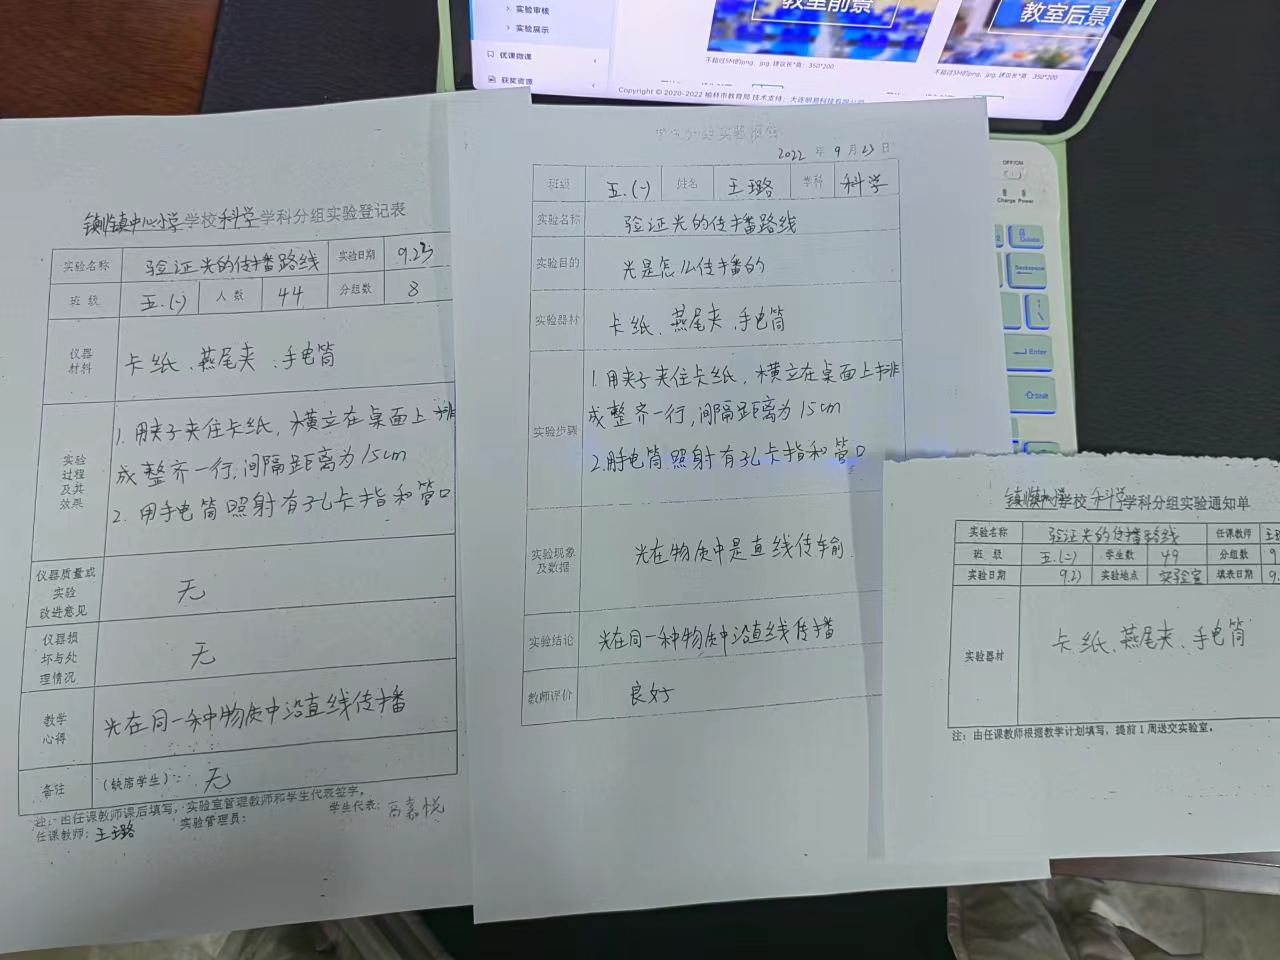 实验审核
实验展示
优课微课
获奖资源
教室前景
教室后景
不超过5M的png、jpg, 建议长*高：350*200
不超过5M的png、jpg, 建议长*高：350*200
Copyright © 2020-2022 榆林市教育局 技术支持：大连明易科技有限公司
ON/OFF
Charge Power
Delete
Backspace
Enter
Shift
镇川镇中心小学学校科学学科分组实验登记表
实验名称 验证光的传播路线 实验日期 9.23
班 级 五.(一) 人 数 44 分组数 8
仪器
材料
卡纸、燕尾夹、手电筒
实验
过程
及其
效果
1. 用夹子夹住卡纸，横立在桌面上排
成整齐一行,间隔距离为15cm
2. 用手电筒照射有孔卡指和管口
仪器质量或
实验
改进意见
无
仪器损
坏与处
理情况
无
教学
心得
光在同一种物质中沿直线传播
备注 (缺席学生)： 无
注：由任课教师课后填写，实验室管理教师和学生代表签字。
任课教师：王璐 实验管理员： 学生代表：高嘉悦
学生分组实验报告
2022 年 9 月 23 日
班级 五.(一) 姓名 王璐 学科 科学
实验名称 验证光的传播路线
实验目的 光是怎么传播的
实验器材 卡纸、燕尾夹、手电筒
实验步骤
1. 用夹子夹住卡纸，横立在桌面上排
成整齐一行,间隔距离为15cm
2.用手电筒照射有孔卡指和管口
实验现象
及数据
光在物质中是直线传输
实验结论 光在同一种物质中沿直线传播
教师评价 良好
镇川镇中心小学学校科学学科分组实验通知单
实验名称 验证光的传播路线 任课教师 王
班 级 五.(二) 学生数 49 分组数 9
实验日期 9.23 实验地点 实验室 填表日期 9.
实验器材 卡纸、燕尾夹、手电筒
注：由任课教师根据教学计划填写，提前1周送交实验室。